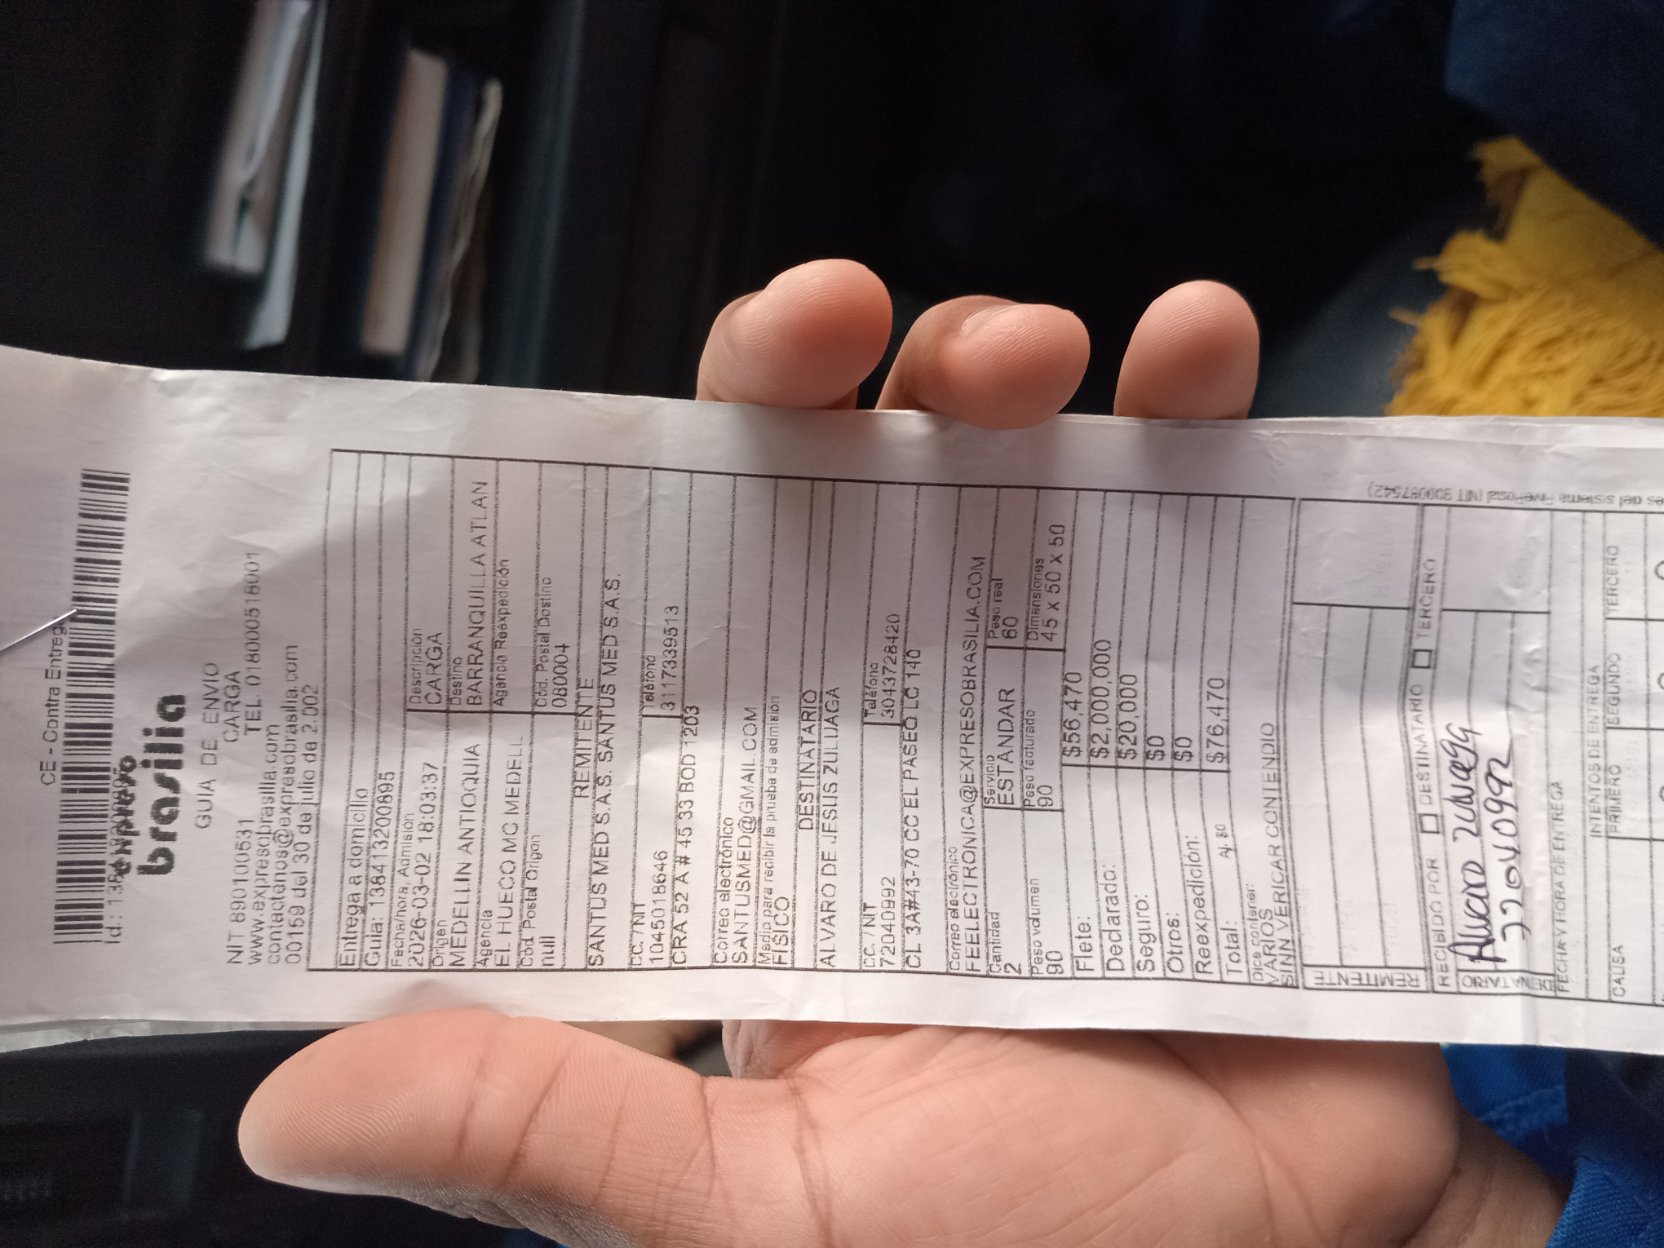 CE - Contra Entreg
Id.: 138
expreso
brasilia
GUIA DE ENVIO
NIT 890100531 CARGA
www.expresobrasilia.com TEL. 018000518001
contactenos@expresobrasilia.com
00159 del 30 de julio de 2.002
Entrega a domicilio
Guia: 138413200895
Fecha/hora, Admision Descripción
2026-03-02 18:03:37 CARGA
Origen Destino
MEDELLIN ANTIOQUIA BARRANQUILLA ATLAN
Agencia Agencia Reexpedición
EL HUECO MC MEDELL
Cód. Postal Origen Cód. Postal Destino
null 080004
REMITENTE
SANTUS MED S.A.S. SANTUS MED S.A.S.
CC. / NIT Teléfono
1045018646 3117339513
CRA 52 A # 45 33 BOD 1203
Correo electrónico
SANTUSMED@GMAIL.COM
Medio para recibir la prueba de admision
FISICO
DESTINATARIO
ALVARO DE JESUS ZULUAGA
CC. / NIT Teléfono
72040992 3043728420
CL 3A#43-70 CC EL PASEO LC 140
Correo electrónico
FEELECTRONICA@EXPRESOBRASILIA.COM
Cantidad Servicio Peso real
2 ESTANDAR 60
Peso volumen Peso facturado Dimensiones
90 90 45 x 50 x 50
Flete: $56,470
Declarado: $2,000,000
Seguro: $20,000
Otros: $0
Reexpedición: $0
Total: Aj. $0 $76,470
Dice contener:
VARIOS
SIN VERICAR CONTENDIO
REMITENTE
RECIBIDO POR DESTINATARIO TERCERO
Alvaro Zuluaga
72040992
FECHA Y HORA DE ENTREGA
INTENTOS DE ENTREGA
CAUSA PRIMERO SEGUNDO TERCERO